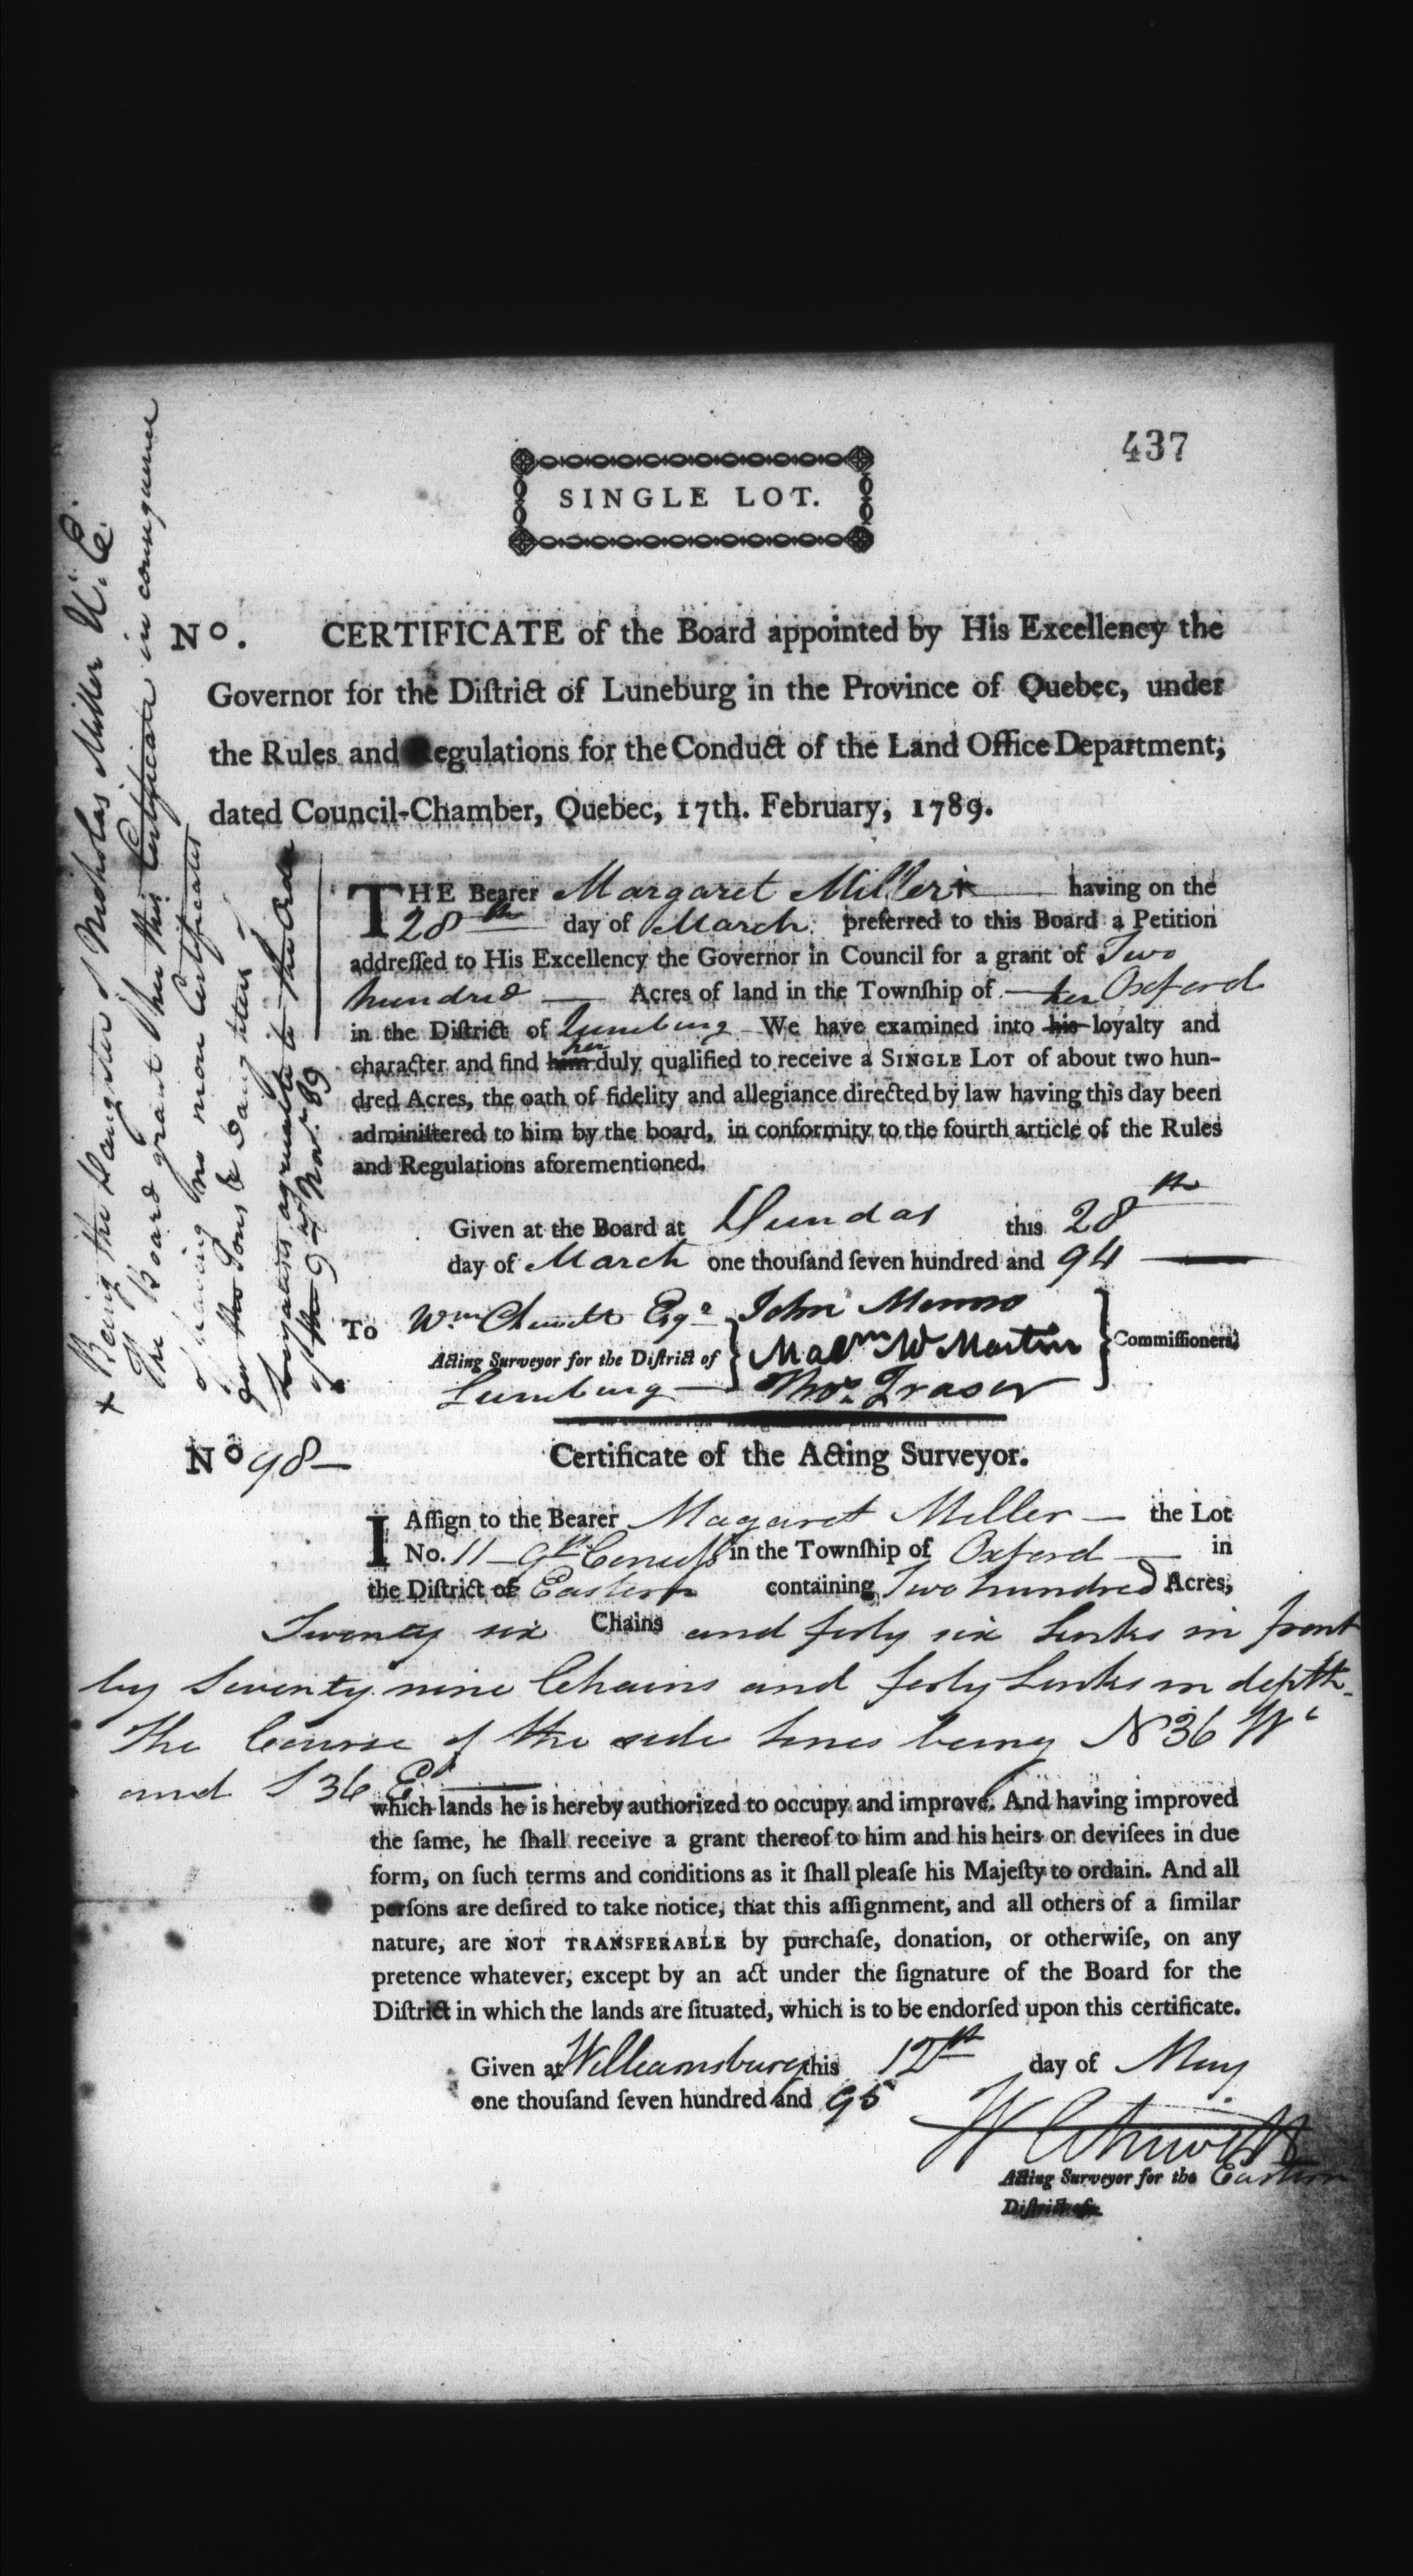 437
SINGLE LOT.
No. CERTIFICATE of the Board appointed by His Excellency the
Governor for the Diſtrict of Luneburg in the Province of Quebec, under
the Rules and Regulations for the Conduct of the Land Office Department,
dated Council-Chamber, Quebec, 17th. February, 1789.
THE Bearer Margaret Miller + having on the
28th day of March preferred to this Board a Petition
addreſſed to His Excellency the Governor in Council for a grant of Two
hundred Acres of land in the Townſhip of Oxford
in the Diſtrict of Luneburg We have examined into his her loyalty and
character and find him her duly qualified to receive a SINGLE LOT of about two hun-
dred Acres, the oath of fidelity and allegiance directed by law having this day been
adminiſtered to him by the board, in conformity to the fourth article of the Rules
and Regulations aforementioned.
Given at the Board at Dundas this 28th
day of March one thouſand ſeven hundred and 94
To Wm Chewett Esqr John Munro
Acting Surveyor for the Diſtrict of Malm McMartin Commiſſioners.
Luneburg Thos. Fraser
+ Being the daughter of Nicholas Miller U. E.
The Board grant this Certificate in consequence
of having no more Certificates
for the Sons & Daughters of
Loyalists agreeable to the Order
of the 9th Novr. 89
No 98
Certificate of the Acting Surveyor.
I Aſſign to the Bearer Magaret Miller the Lot
No. 11 9th Concess in the Townſhip of Oxford in
the Diſtrict of Eastern containing Two hundred Acres,
Twenty six Chains and forty six Links in front
by Seventy nine Chains and forty Links in depth
The Course of the side lines being N 36 Wt
and S 36 Et
which lands he is hereby authorized to occupy and improve. And having improved
the ſame, he ſhall receive a grant thereof to him and his heirs or deviſees in due
form, on ſuch terms and conditions as it ſhall pleaſe his Majeſty to ordain. And all
perſons are deſired to take notice, that this aſſignment, and all others of a ſimilar
nature, are NOT TRANSFERABLE by purchaſe, donation, or otherwiſe, on any
pretence whatever, except by an act under the ſignature of the Board for the
Diſtrict in which the lands are ſituated, which is to be endorſed upon this certificate.
Given at Williamsburg this 12th day of May
one thouſand ſeven hundred and 95
W Chewett
Acting Surveyor for the Eastern
Diſtrict of